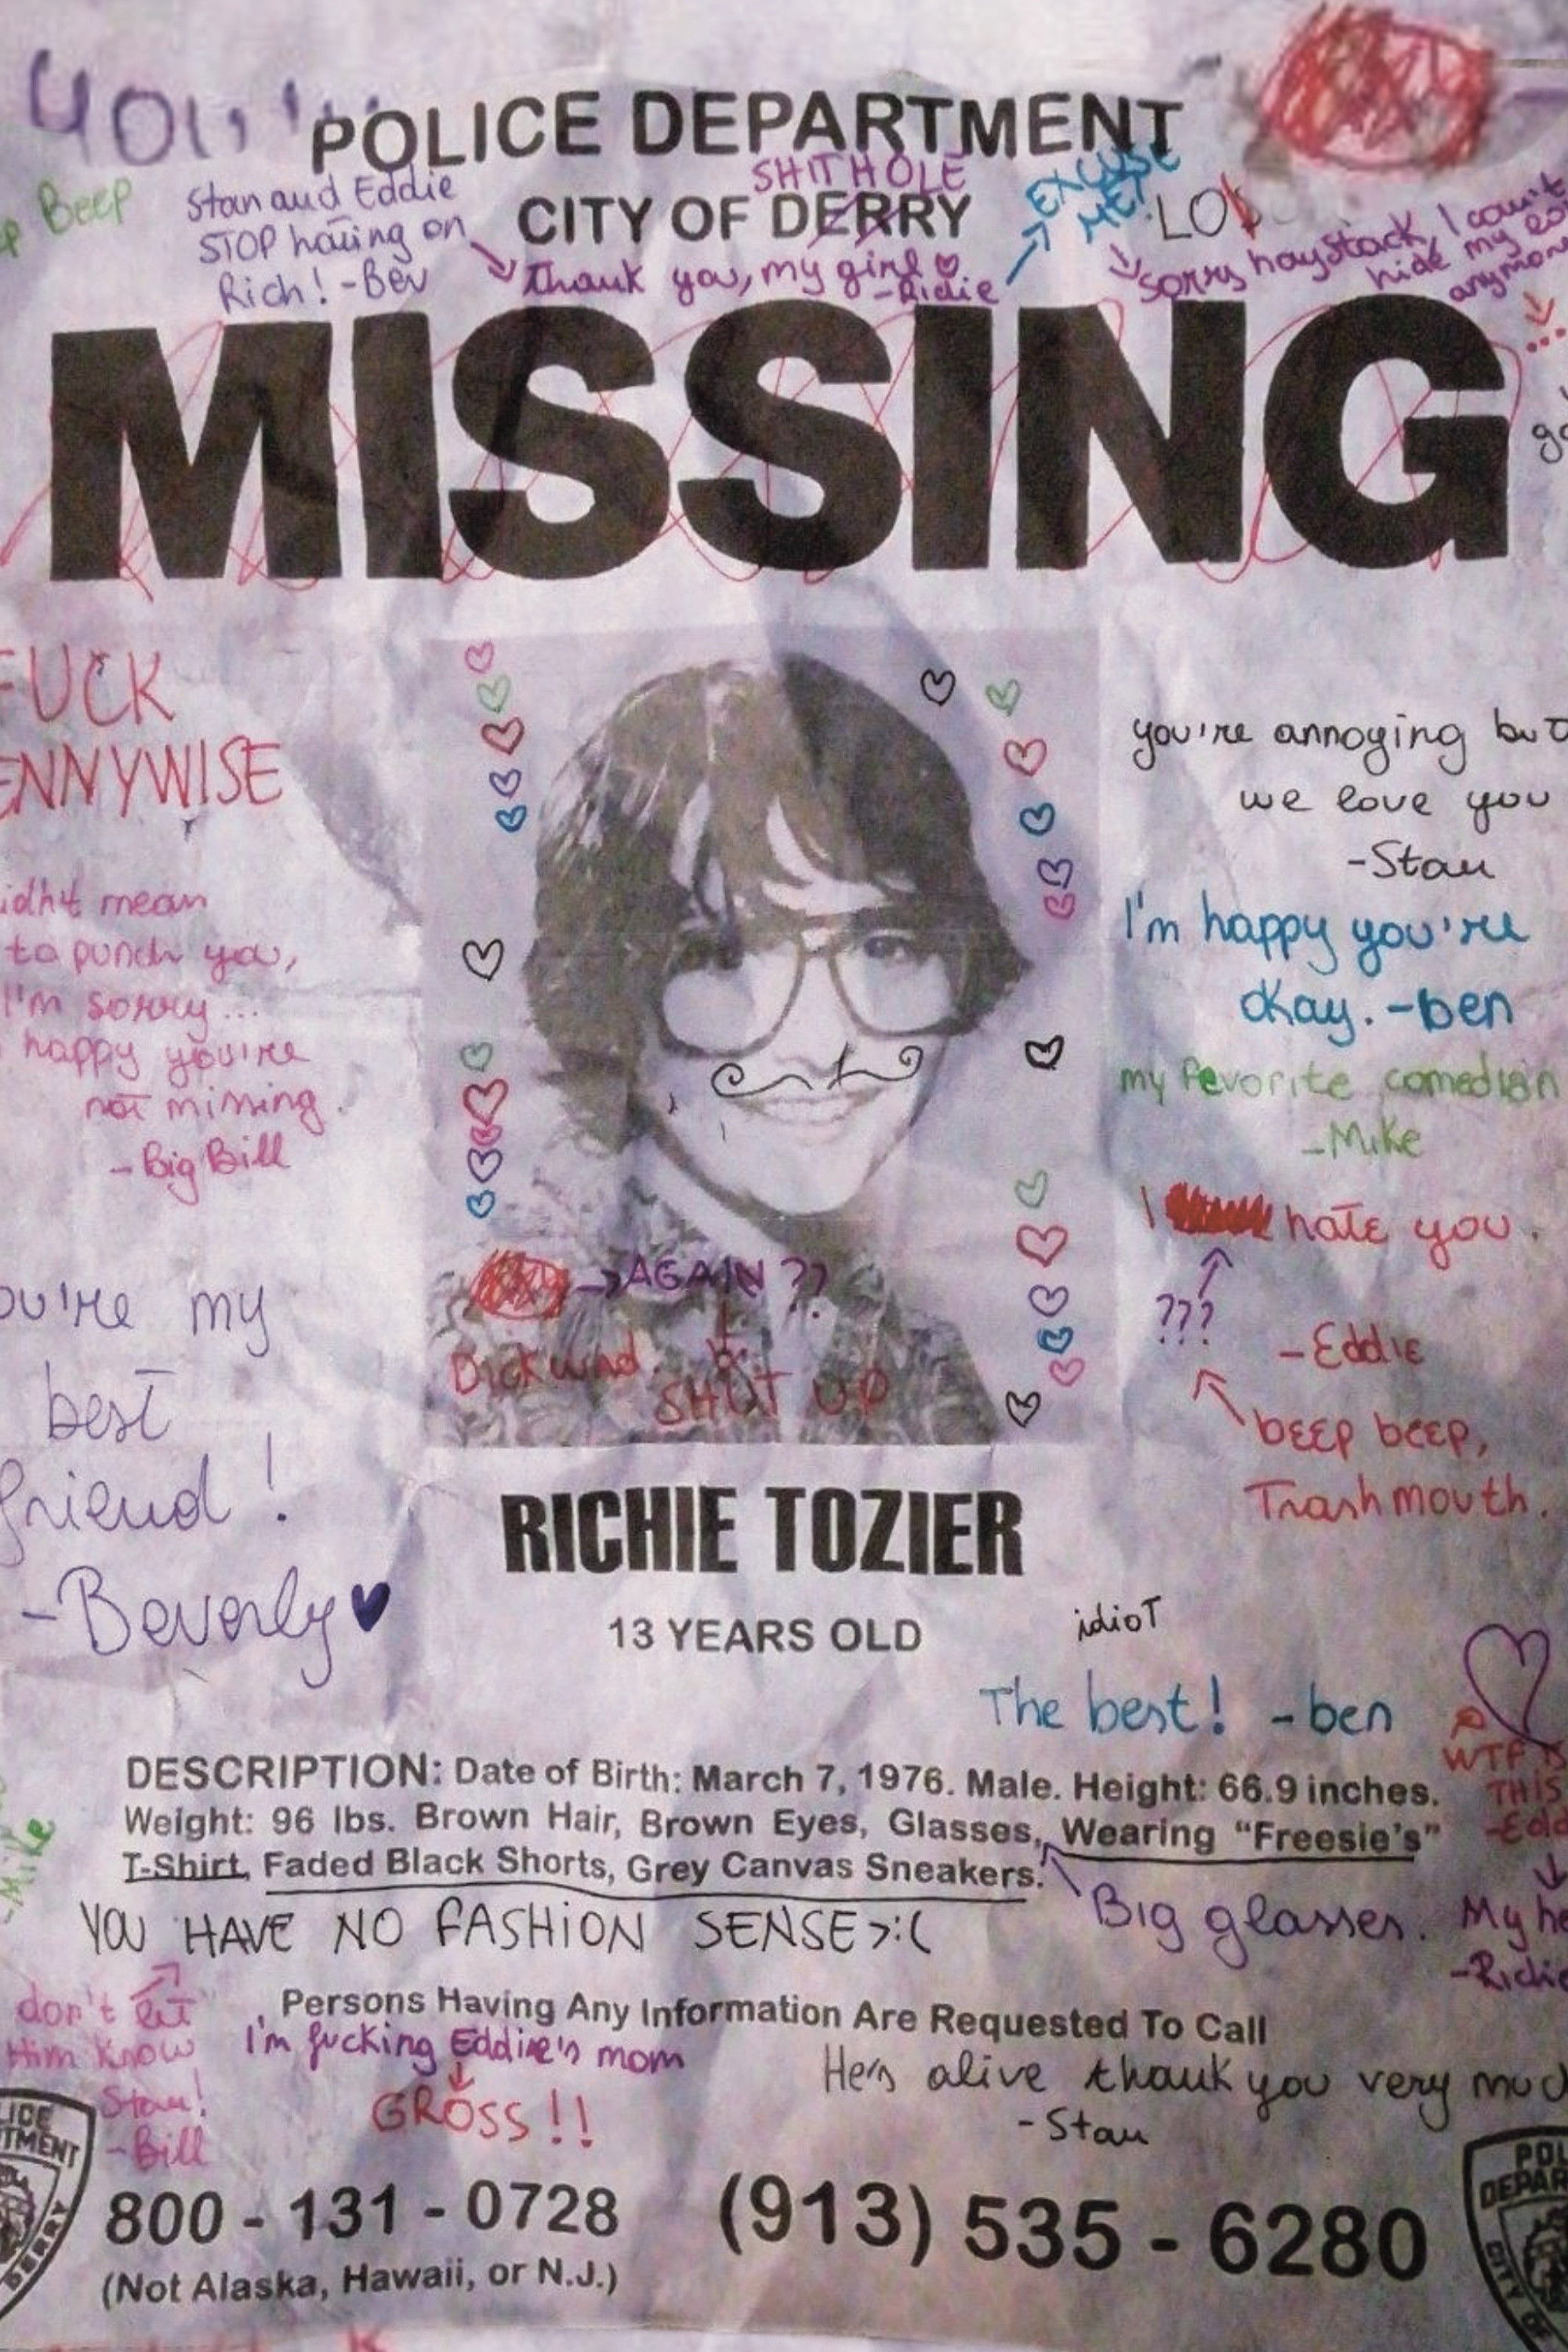 POLICE DEPARTMENT
Beep
Stan and Eddie
STOP hating on
Rich! -Bev
SHITHOLE
CITY OF DERRY
Thank you, my girl
-Richie
EXCUSE
ME?
Sorry haystack, I can't
hide my
anymore
MISSING
FUCK
ENNYWISE
idn't mean
to punch you,
I'm sorry...
happy you're
not missing.
-Big Bill
ou're my
best
friend!
-Beverly
you're annoying but
we love you
-Stan
I'm happy you're
okay. -ben
my fevorite comedian
-Mike
I hate you.
???
-Eddie
beep beep,
Trashmouth.
AGAIN ??
Dickwad.
SHUT UP
RICHIE TOZIER
13 YEARS OLD
idiot
The best! -ben
WTF IS
THIS
DESCRIPTION: Date of Birth: March 7, 1976. Male. Height: 66.9 inches.
Weight: 96 lbs. Brown Hair, Brown Eyes, Glasses, Wearing "Freesie's"
T-Shirt, Faded Black Shorts, Grey Canvas Sneakers.
-Mike
YOU HAVE NO FASHION SENSE >:(
Big glasses.
My
-Richie
don't let
Him know
Stan!
-Bill
Persons Having Any Information Are Requested To Call
I'm fucking Eddie's mom
GROSS!!
He's alive thank you very muc
-Stan
800 - 131 - 0728
(Not Alaska, Hawaii, or N.J.)
(913) 535 - 6280
DERRY
CITY OF